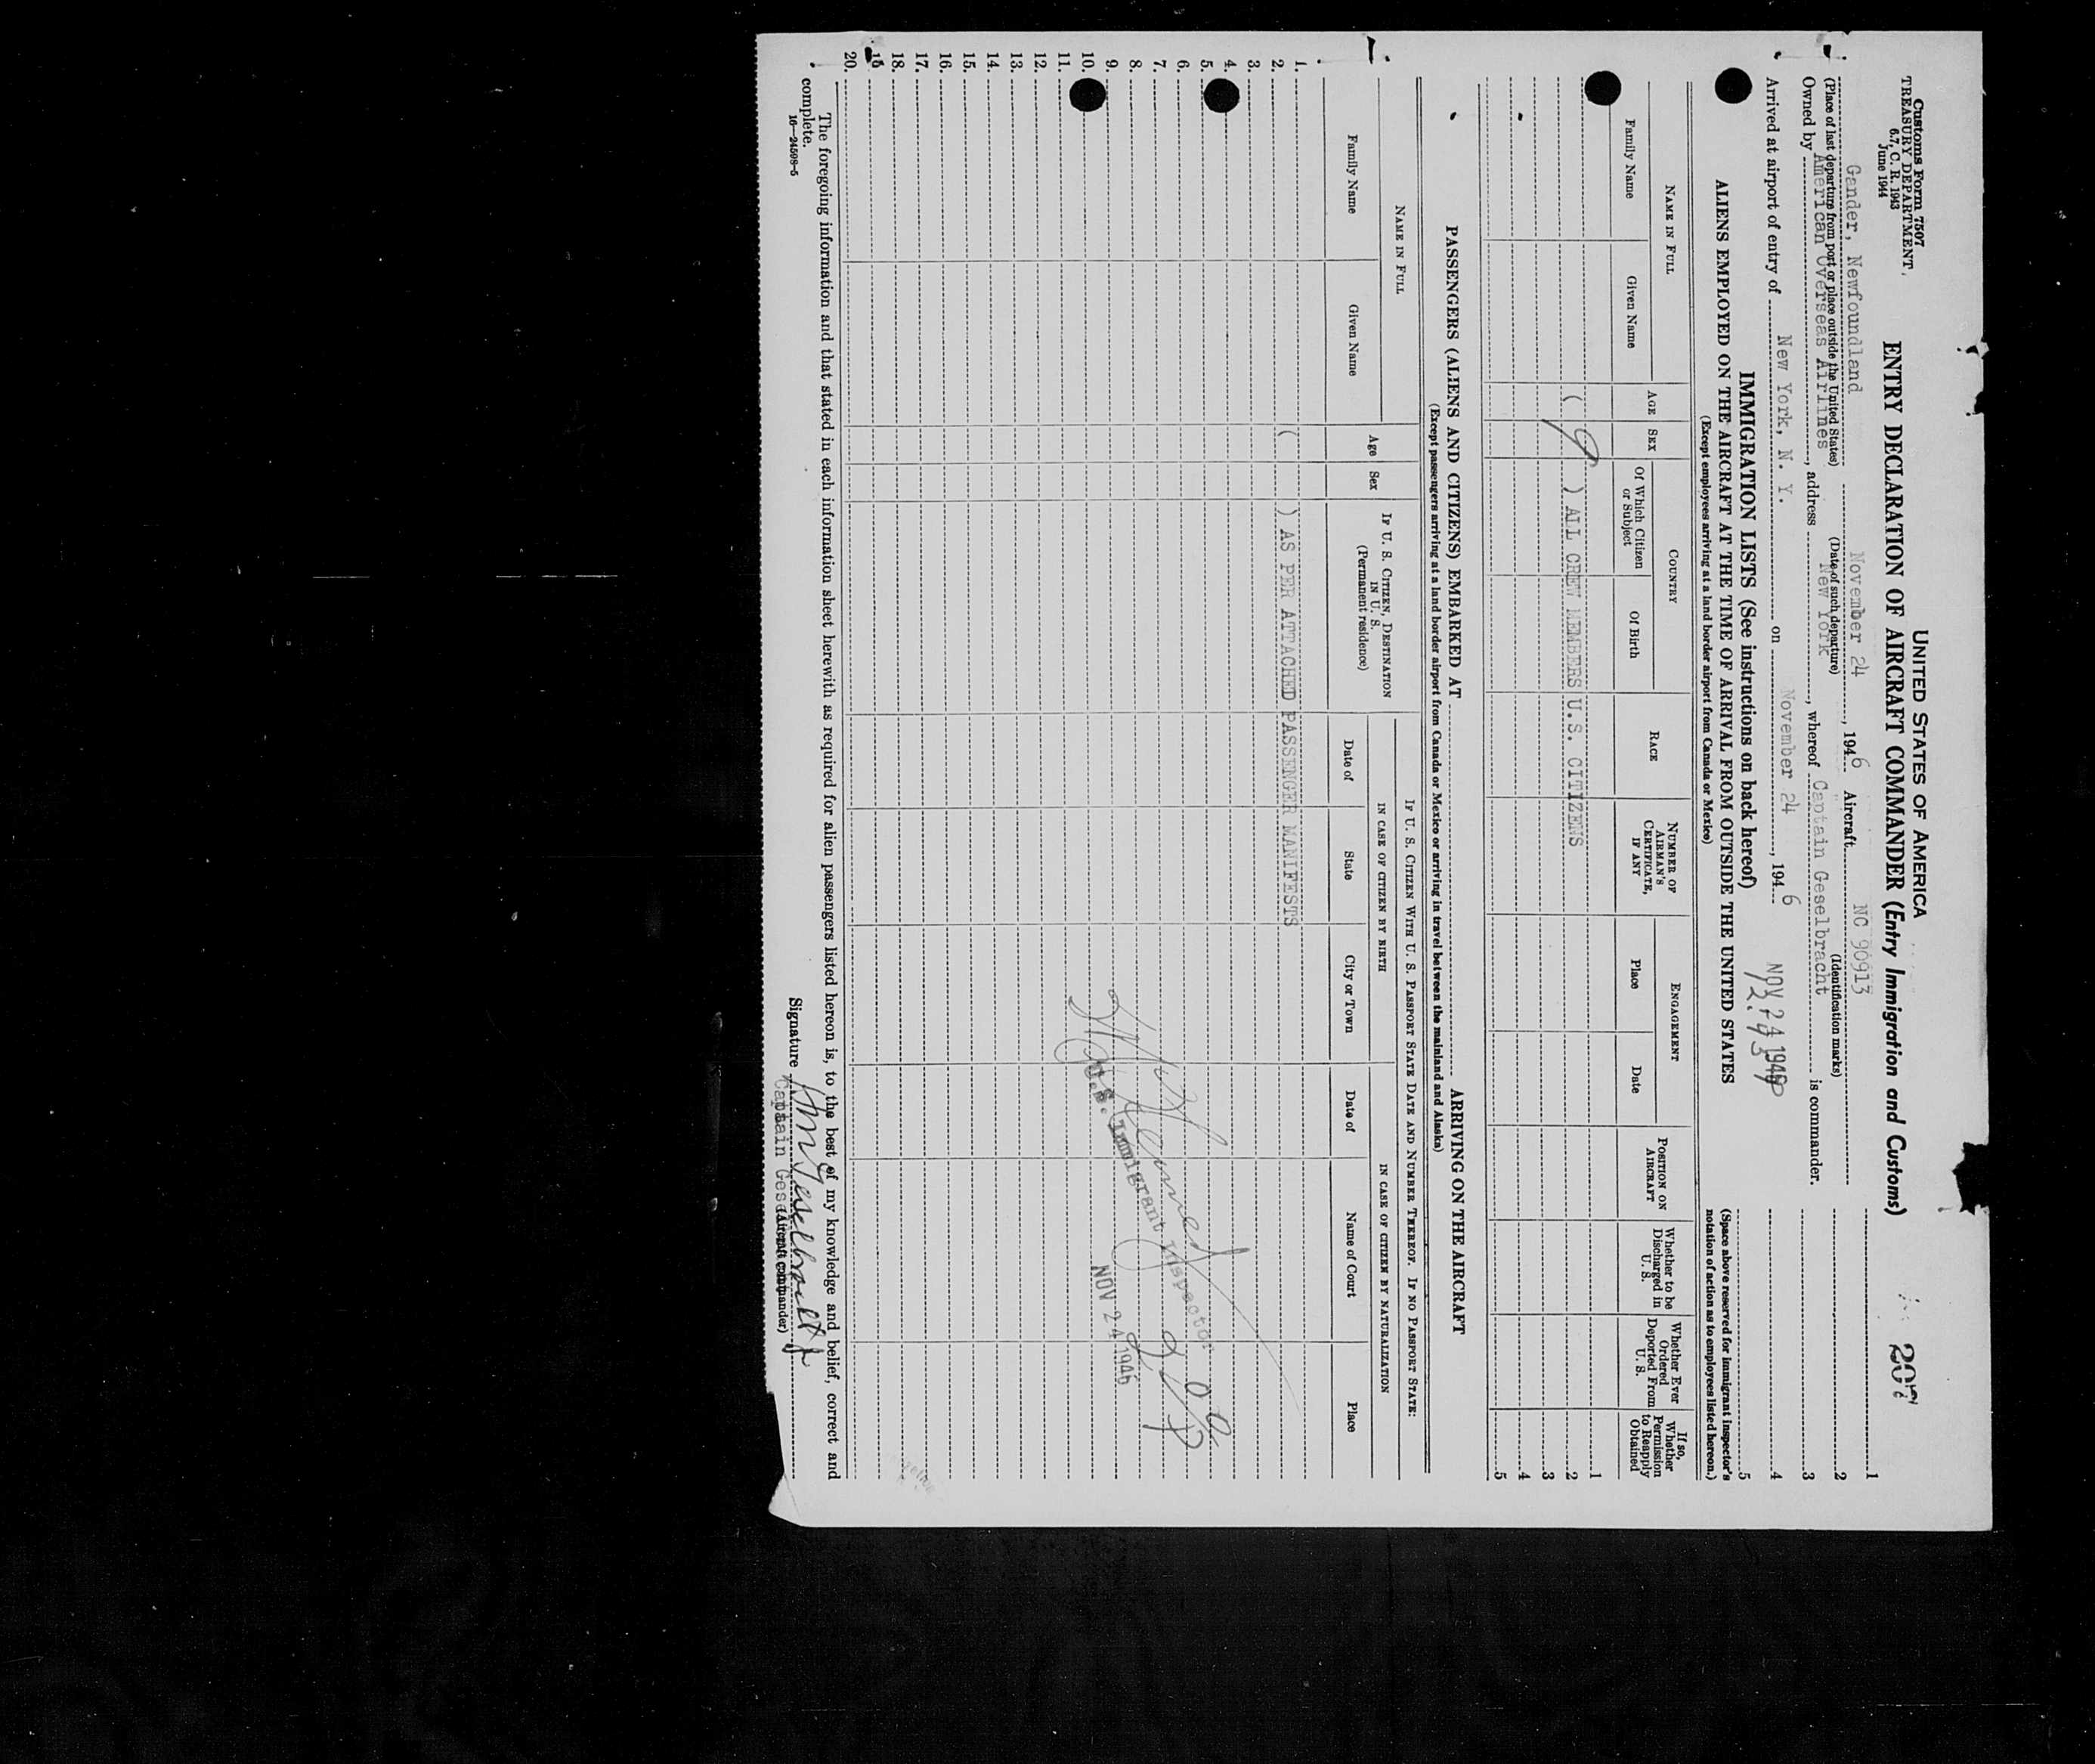 Customs Form 7507
TREASURY DEPARTMENT
6.7, C. R. 1943
June 1944
UNITED STATES OF AMERICA
ENTRY DECLARATION OF AIRCRAFT COMMANDER (Entry Immigration and Customs)
207
Gander, Newfoundland November 24, 1946 Aircraft NC 90913
(Place of last departure from port or place outside the United States) (Date of such departure) (Identification marks)
Owned by American Overseas Airlines, address New York, whereof Captain Geselbracht is commander.
Arrived at airport of entry of New York, N. Y. on November 24, 1946
NOV 24 1946
1
2
3
4
5
IMMIGRATION LISTS (See instructions on back hereof)
ALIENS EMPLOYED ON THE AIRCRAFT AT THE TIME OF ARRIVAL FROM OUTSIDE THE UNITED STATES
(Except employees arriving at a land border airport from Canada or Mexico)
(Space above reserved for immigrant inspector's notation of action as to employees listed hereon.)
NAME IN FULL
Family Name
Given Name
AGE
SEX
COUNTRY
Of Which Citizen or Subject
Of Birth
RACE
NUMBER OF AIRMAN'S CERTIFICATE, IF ANY
ENGAGEMENT
Place
Date
POSITION ON AIRCRAFT
Whether to be Discharged in U. S.
Whether Ever Ordered Deported From U. S.
If so, Whether Permission to Reapply Obtained
1
( 9 ) ALL CREW MEMBERS U.S. CITIZENS 2
3
4
5
PASSENGERS (ALIENS AND CITIZENS) EMBARKED AT ARRIVING ON THE AIRCRAFT
(Except passengers arriving at a land border airport from Canada or Mexico or arriving in travel between the mainland and Alaska)
NAME IN FULL
Family Name
Given Name
Age
Sex
IF U. S. CITIZEN, DESTINATION IN U. S.
(Permanent residence)
IF U. S. CITIZEN WITH U. S. PASSPORT STATE DATE AND NUMBER THEREOF. IF NO PASSPORT STATE:
IN CASE OF CITIZEN BY BIRTH
IN CASE OF CITIZEN BY NATURALIZATION
Date of
State
City or Town
Date of
Name of Court
Place
1.
2. ( ) AS PER ATTACHED PASSENGER MANIFESTS
3.
4.
5.
6.
7.
8.
9.
10.
11.
12.
13.
14.
15.
16.
17.
18.
20.
U.S. Immigrant Inspector
NOV 24 1946
The foregoing information and that stated in each information sheet herewith as required for alien passengers listed hereon is, to the best of my knowledge and belief, correct and
complete.
16—24508-5
Signature
Captain Geselbracht
(Aircraft commander)